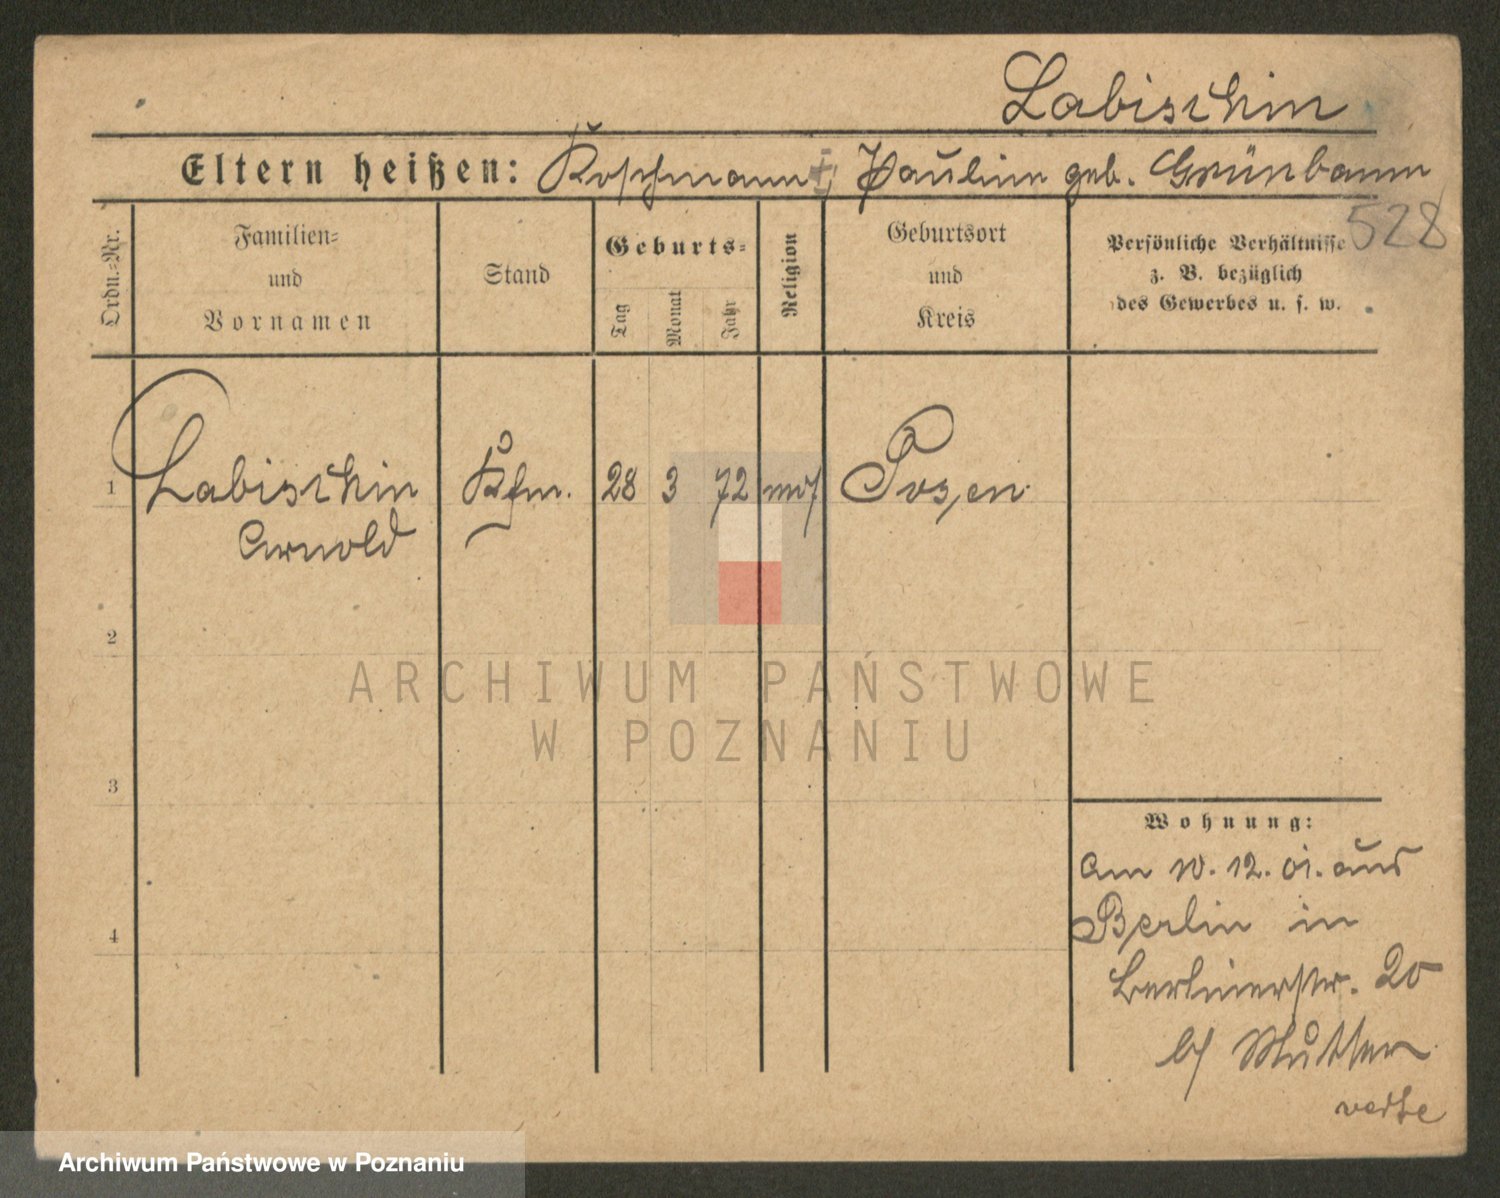 Labischin
Eltern heißen: Koschmann †, Pauline geb. Grünbaum
528
Ordn.-Nr.
Familien-
und
Vornamen
Stand
Geburts-
Tag
Monat
Jahr
Religion
Geburtsort
und
Kreis
Persönliche Verhältnisse
z. B. bezüglich
des Gewerbes u. s. w.
1 Labischin Kfm. 28 3 72 mos Posen
Arnold
2
3
4
Wohnung:
Am 10. 12. 01. aus
Berlin in
Berlinerstr. 20
b/ Mutter
ARCHIWUM PAŃSTWOWE
W POZNANIU
Archiwum Państwowe w Poznaniu